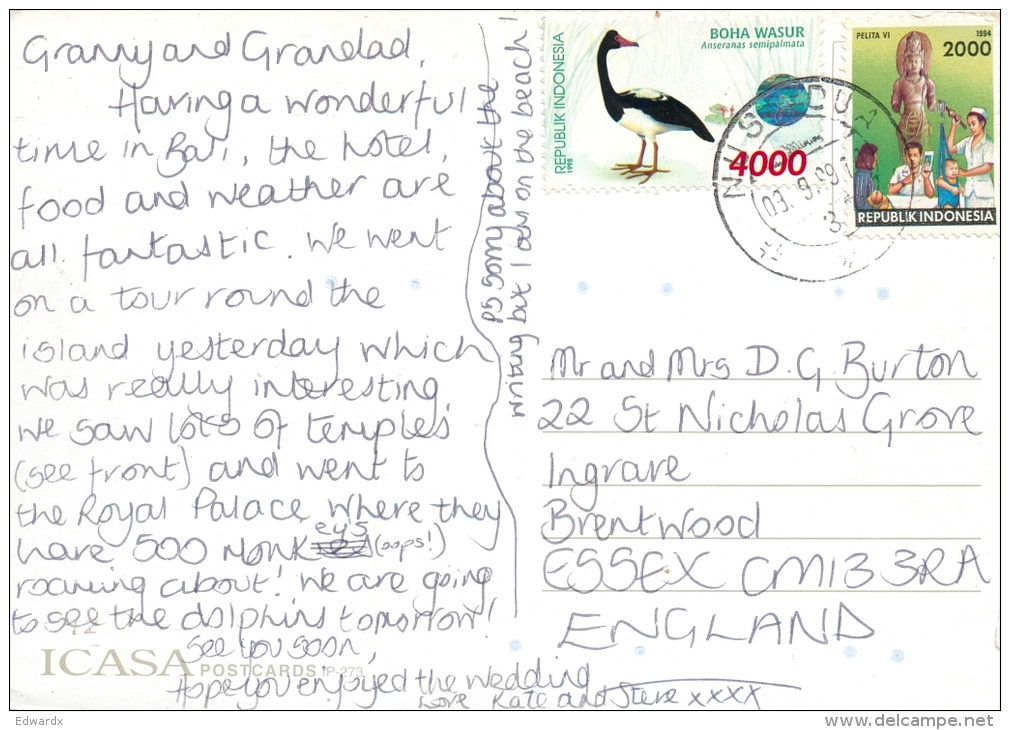 Granny and Grandad,
Having a wonderful
time in Bali, the hotel,
food and weather are
all fantastic. We went
on a tour round the
island yesterday which
was really interesting.
We saw lots of temples
(see front) and went to
the Royal Palace where they
have 500 Monkeys (oops!)
roaming about! We are going
to see the dolphins tomorrow!
See you soon,
Hope you enjoyed the wedding
Love Kate and Steve xxxx
PS sorry about the
writing but I am on the beach!
ICASA POSTCARDS IP-273
REPUBLIK INDONESIA
1998
BOHA WASUR
Anseranas semipalmata
4000
PELITA VI 1994
2000
REPUBLIK INDONESIA
NUSA DUA
Mr and Mrs D. G. Burton
22 St Nicholas Grove
Ingrave
Brentwood
ESSEX CM13 3RA
ENGLAND
Edwardx
www.delcampe.net